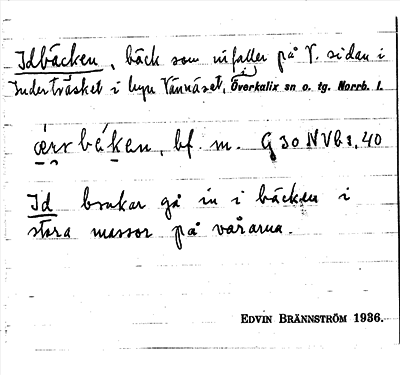 Idbäcken, bäck som infaller på V. sidan i
Inderträsket i byn Vännäset, Överkalix sn o. tg. Norrb. l.
bf. m. G 30 NVb 1,40
Id brukar gå in i bäcken i
stora massor på vårarna.
EDVIN BRÄNNSTRÖM 1936.